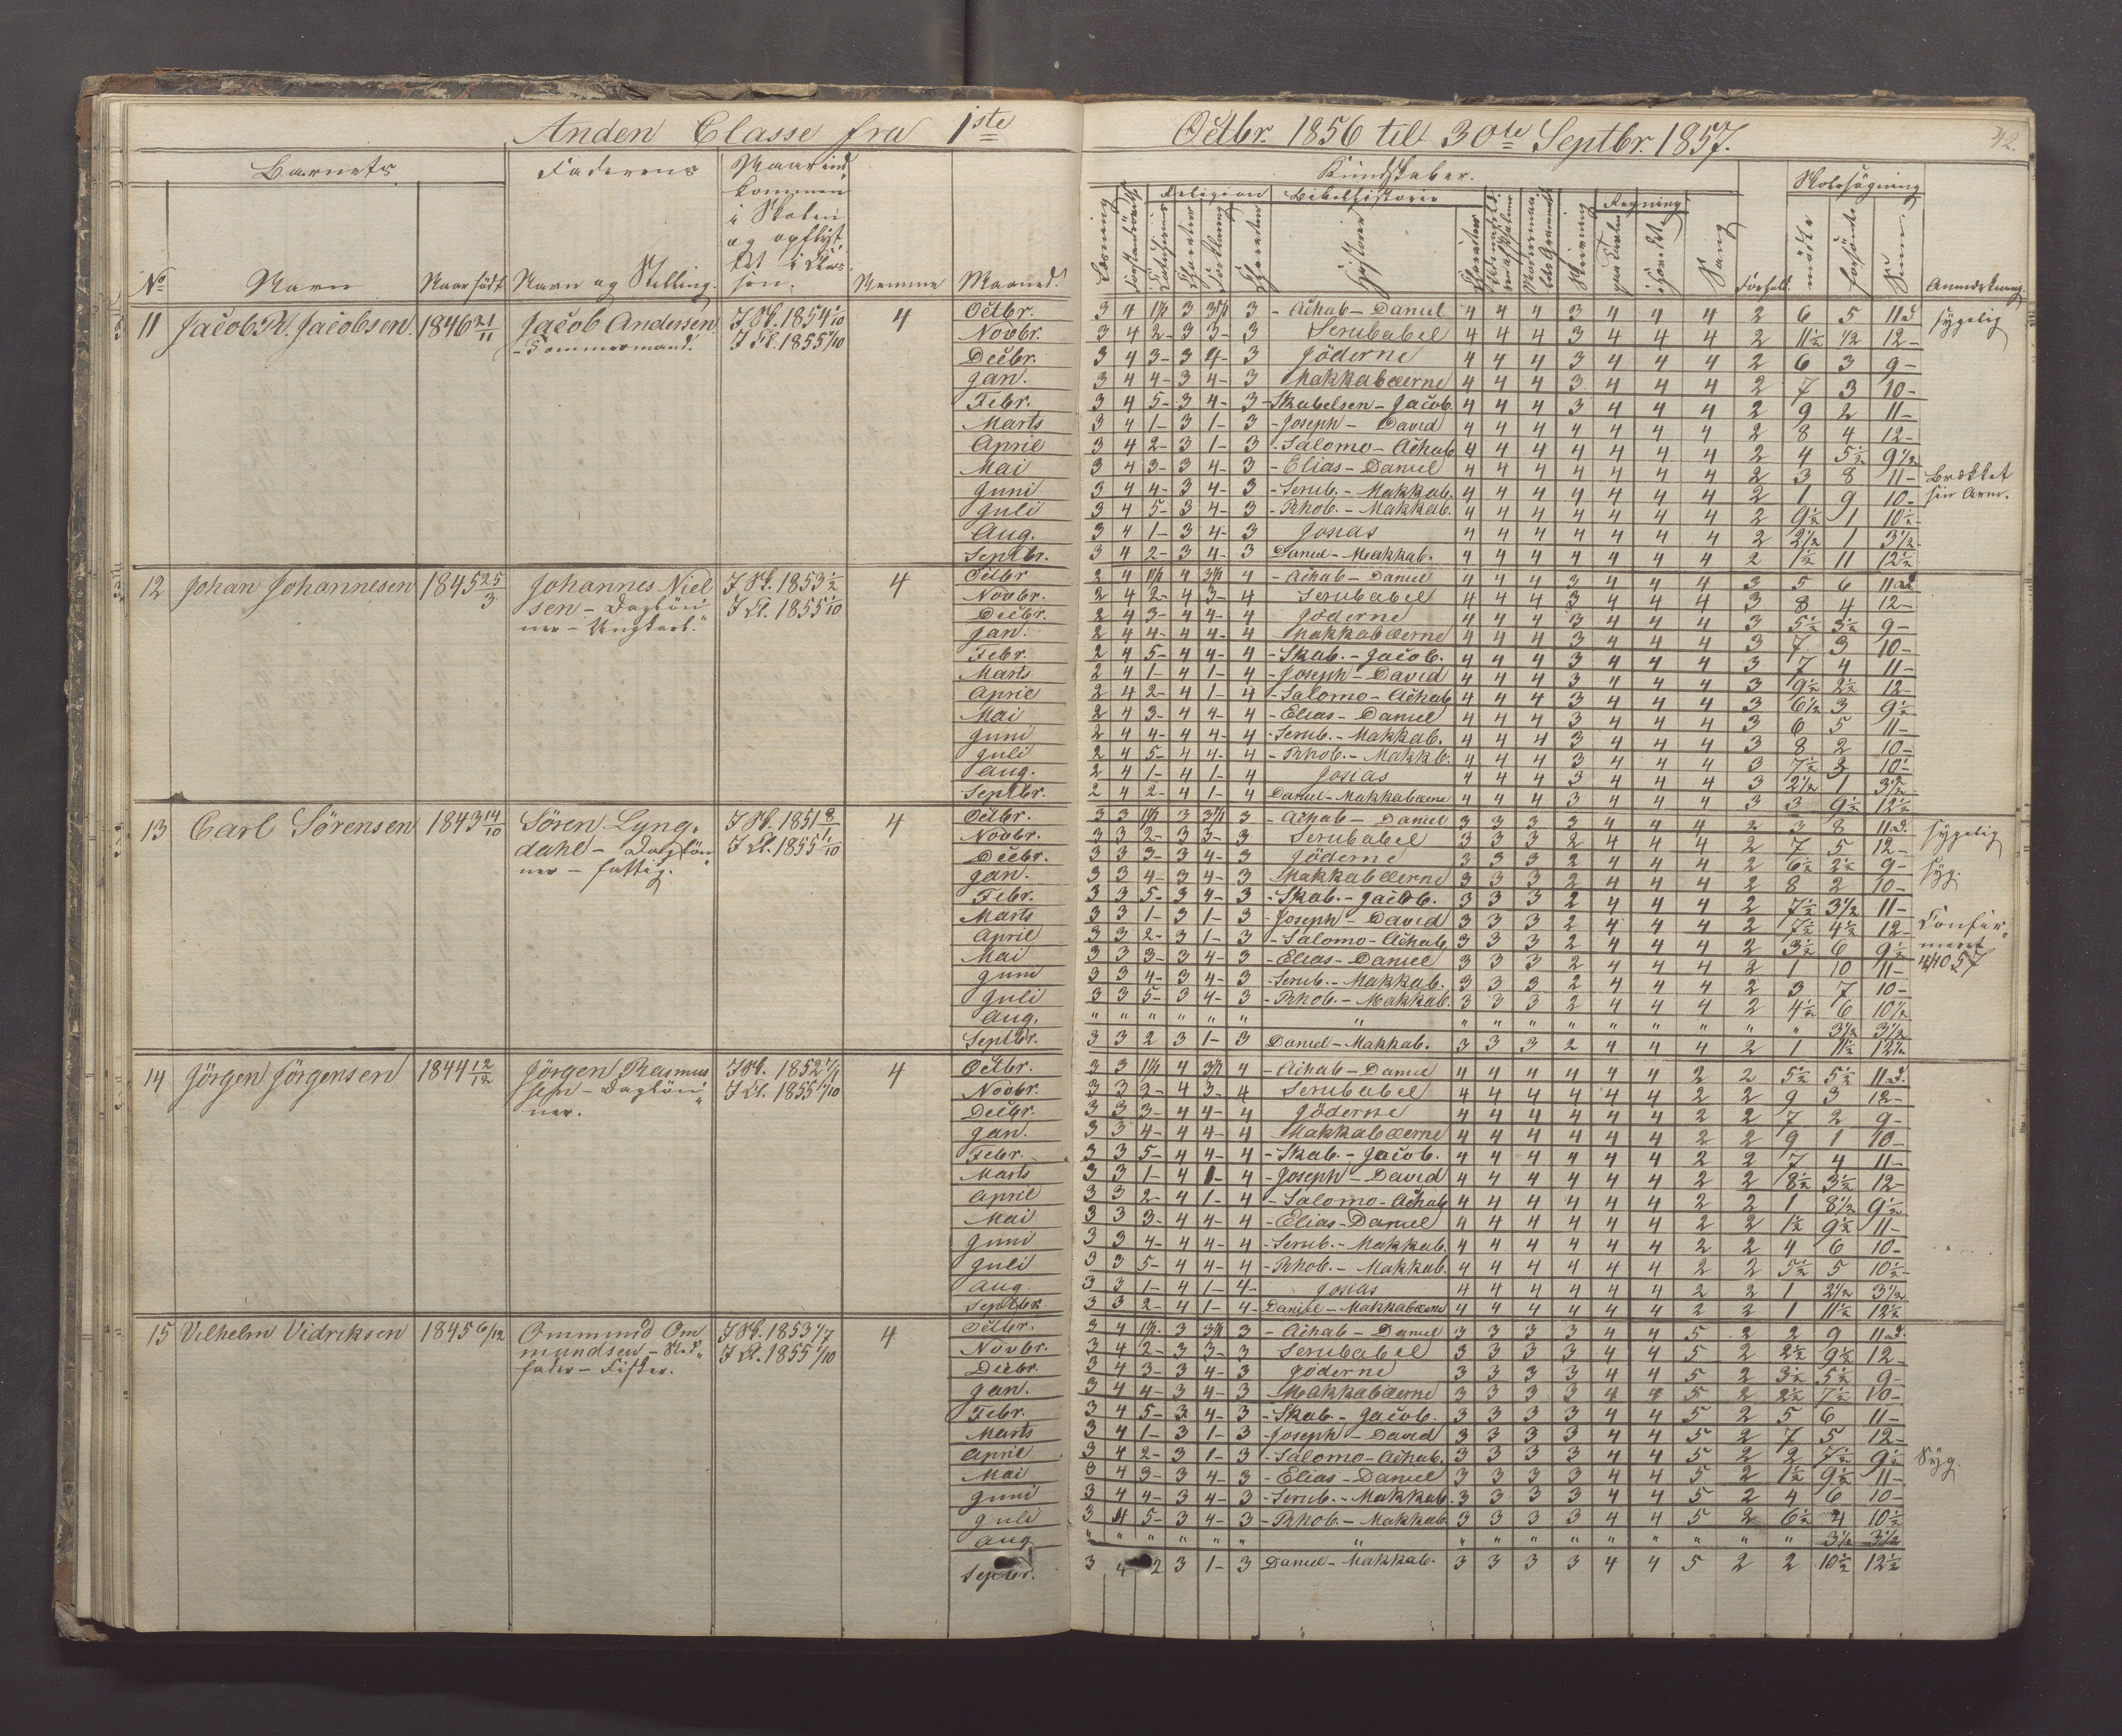 Anden Classe fra 1ste Octbr. 1856 til 30te Septbr. 1857.
42.
Barnets Faderens Naar ind kommen i Skolen og opflyt tet i Clas sen. Kundskaber. Skolesøgning
Religion Bibelhistorie Regning
No Navn Naar født Navn og Stilling. Nemme Maaned. Læsning Historier Skrivning Sang Forhold. mødte forsømte Sum Anmærkning.
11 Jacob R. Jacobsen. 1846 21/11 Jacob Andersen J Sk. 1854 1/10 4 Octbr. 3 4 1½ 3 3½ 3 - Achab - Daniel 4 4 4 3 4 4 4 2 6 5 11 d sygelig
- Tømmermand. J Cl. 1855 1/10 Novbr. 3 4 2- 3 3- 3 Serubabel 4 4 4 3 4 4 4 2 11½ ½ 12-
Decbr. 3 4 3- 3 4- 3 Jöderne 4 4 4 3 4 4 4 2 6 3 9-
Jan. 3 4 4- 3 4- 3 Makkabæerne 4 4 4 3 4 4 4 2 7 3 10-
Febr. 3 4 5- 3 4- 3 - Skabelsen - Jacob. 4 4 4 3 4 4 4 2 9 2 11-
Marts 3 4 1- 3 1- 3 - Joseph - David 4 4 4 4 4 4 4 2 8 4 12-
April 3 4 2- 3 1- 3 - Salomo - Achab 4 4 4 4 4 4 4 2 4 5½ 9½
Mai 3 4 3- 3 4- 3 - Elias - Daniel 4 4 4 4 4 4 4 2 3 8 11- Brækket
Juni 3 4 4- 3 4- 3 - Serub. - Makkab. 4 4 4 4 4 4 4 2 1 9 10- sin Arm.
Juli 3 4 5- 3 4- 3 - Rhob. - Makkab. 4 4 4 4 4 4 4 2 9½ 1 10½-
Aug. 3 4 1- 3 4- 3 Josias 4 4 4 4 4 4 4 2 2½ 1 3½
Septbr. 3 4 2- 3 4- 3 Daniel - Makkab. 4 4 4 4 4 4 4 2 1½ 11 12½
12 Johan Johannesen 1845 25/3 Johannes Niel J Sk. 1853 1/2 4 Octbr 2 4 1½ 4 3½ 4 - Achab - Daniel 4 4 4 3 4 4 4 3 5 6 11 d
sen - Daglön J Cl. 1855 1/10 Novbr. 2 4 2- 4 3- 4 Serubabel 4 4 4 3 4 4 4 3 8 4 12-
ner - Ungkarl. Decbr. 2 4 3- 4 4- 4 Jöderne 4 4 4 3 4 4 4 3 5½ 3½ 9-
Jan. 2 4 4- 4 4- 4 Makkabæerne 4 4 4 3 4 4 4 3 7 3 10-
Febr. 2 4 5- 4 4- 4 - Skab. - Jacob. 4 4 4 3 4 4 4 3 7 4 11-
Marts 2 4 1- 4 1- 4 - Joseph - David 4 4 4 3 4 4 4 3 9½ 2½ 12-
April 2 4 2- 4 1- 4 - Salomo - Achab 4 4 4 3 4 4 4 3 6½ 3 9½
Mai 2 4 3- 4 4- 4 - Elias - Daniel 4 4 4 3 4 4 4 3 6 5 11-
Juni 2 4 4- 4 4- 4 - Serub. - Makkab. 4 4 4 3 4 4 4 3 8 2 10-
Juli 2 4 5- 4 4- 4 - Rhob. - Makkab. 4 4 4 3 4 4 4 3 7½ 3 10½
Aug. 2 4 1- 4 1- 4 Josias 4 4 4 3 4 4 4 3 2½ 1 3½
Septbr. 2 4 2- 4 1- 4 Daniel - Makkabæerne 4 4 4 3 4 4 4 3 3 9½ 12½
13 Carl Sörensen 1843 14/10 Sören Lyng J Sk. 1851 8/1 4 Octbr. 3 3 1½ 3 3½ 3 - Achab - Daniel 3 3 3 3 4 4 4 2 3 8 11 d. sygelig
dahl - Daglön J Cl. 1855 1/10 Novbr. 3 3 2- 3 3- 3 Serubabel 3 3 3 2 4 4 4 2 7 5 12-
ner - fattig. Decbr. 3 3 3- 3 4- 3 Jöderne 3 3 3 2 4 4 4 2 6½ 2½ 9- syg.
Jan. 3 3 4- 3 4- 3 Makkabæerne 3 3 3 2 4 4 4 2 8 2 10-
Febr. 3 3 5- 3 4- 3 - Skab. - Jacob. 3 3 3 2 4 4 4 2 7½ 3½ 11-
Marts 3 3 1- 3 1- 3 - Joseph - David 3 3 3 2 4 4 4 2 7½ 4½ 12- Confir
April 3 3 2- 3 1- 3 - Salomo - Achab 3 3 3 2 4 4 4 2 3½ 6 9½ meret
Mai 3 3 3- 3 4- 3 - Elias - Daniel 3 3 3 2 4 4 4 2 1 10 11- 4/10 57
Juni 3 3 4- 3 4- 3 - Serub. - Makkab. 3 3 3 2 4 4 4 2 3 7 10-
Juli 3 3 5- 3 4- 3 - Rhob. - Makkab. 3 3 3 2 4 4 4 2 4½ 6 10½
Aug. " " " " " " " " " " " " " " " " 3½ 3½
Septbr. 3 3 2 3 1- 3 Daniel - Makkab. 3 3 3 2 4 4 4 2 1 11½ 12½
14 Jörgen Jörgensen 1844 12/12 Jörgen Rasmus J Sk. 1852 7/1 4 Octbr. 3 3 1½ 4 3½ 4 - Achab - Daniel 4 4 4 4 4 4 2 2 5½ 5½ 11 d.
sen - Daglön J Cl. 1855 1/10 Novbr. 3 3 2- 4 3- 4 Serubabel 4 4 4 4 4 4 2 2 9 3 12-
ner. Decbr. 3 3 3- 4 4- 4 Jöderne 4 4 4 4 4 4 2 2 7 2 9-
Jan. 3 3 4- 4 4- 4 Makkabæerne 4 4 4 4 4 4 2 2 9 1 10-
Febr. 3 3 5- 4 4- 4 - Skab. - Jacob. 4 4 4 4 4 4 2 2 7 4 11-
Marts 3 3 1- 4 1- 4 - Joseph - David 4 4 4 4 4 4 2 2 8½ 3½ 12-
April 3 3 2- 4 1- 4 - Salomo - Achab 4 4 4 4 4 4 2 2 1 8½ 9½
Mai 3 3 3- 4 4- 4 - Elias - Daniel 4 4 4 4 4 4 2 2 1½ 9½ 11-
Juni 3 3 4- 4 4- 4 - Serub. - Makkab. 4 4 4 4 4 4 2 2 4 6 10-
Juli 3 3 5- 4 4- 4 - Rhob. - Makkab. 4 4 4 4 4 4 2 2 5½ 5 10½-
Aug 3 3 1- 4 1- 4- Josias 4 4 4 4 4 4 2 2 1 2½ 3½
Septbr. 3 3 2- 4 1- 4- Daniel - Makkabæerne 4 4 4 4 4 4 2 2 1 11½ 12½
15 Vilhelm Vidriksen 1845 6/12 Ommund Om J Sk. 1853 1/7 4 Octbr. 3 4 1½ 3 3½ 3 - Achab - Daniel 3 3 3 3 4 4 5 2 2 9 11 d.
mundsen - Sted J Cl. 1855 1/10 Novbr. 3 4 2- 3 3- 3 Serubabel 3 3 3 3 4 4 5 2 2½ 9½ 12-
fader - Fisker. Decbr. 3 4 3- 3 4- 3 Jöderne 3 3 3 3 4 4 5 2 3½ 5½ 9-
Jan. 3 4 4- 3 4- 3 Makkabæerne 3 3 3 3 4 4 5 2 2½ 7½ 10-
Febr. 3 4 5- 3 4- 3 - Skab. - Jacob. 3 3 3 3 4 4 5 2 5 6 11-
Marts 3 4 1- 3 1- 3 - Joseph - David 3 3 3 3 4 4 5 2 7 5 12-
April 3 4 2- 3 1- 3 - Salomo - Achab. 3 3 3 3 4 4 5 2 2 7½ 9½ Syg.
Mai 3 4 3- 3 4- 3 - Elias - Daniel 3 3 3 3 4 4 5 2 1½ 9½ 11-
Juni 3 4 4- 3 4- 3 - Serub. - Makkab. 3 3 3 3 4 4 5 2 4 6 10-
Juli 3 4 5- 3 4- 3 - Rhob. - Makkab. 3 3 3 3 4 4 5 2 6½ 4 10½
Aug " " " " " " " " " " " " " " " " 3½ 3½
Septbr. 3 4 2 3 1- 3 Daniel - Makkab. 3 3 3 3 4 4 5 2 2 10½ 12½